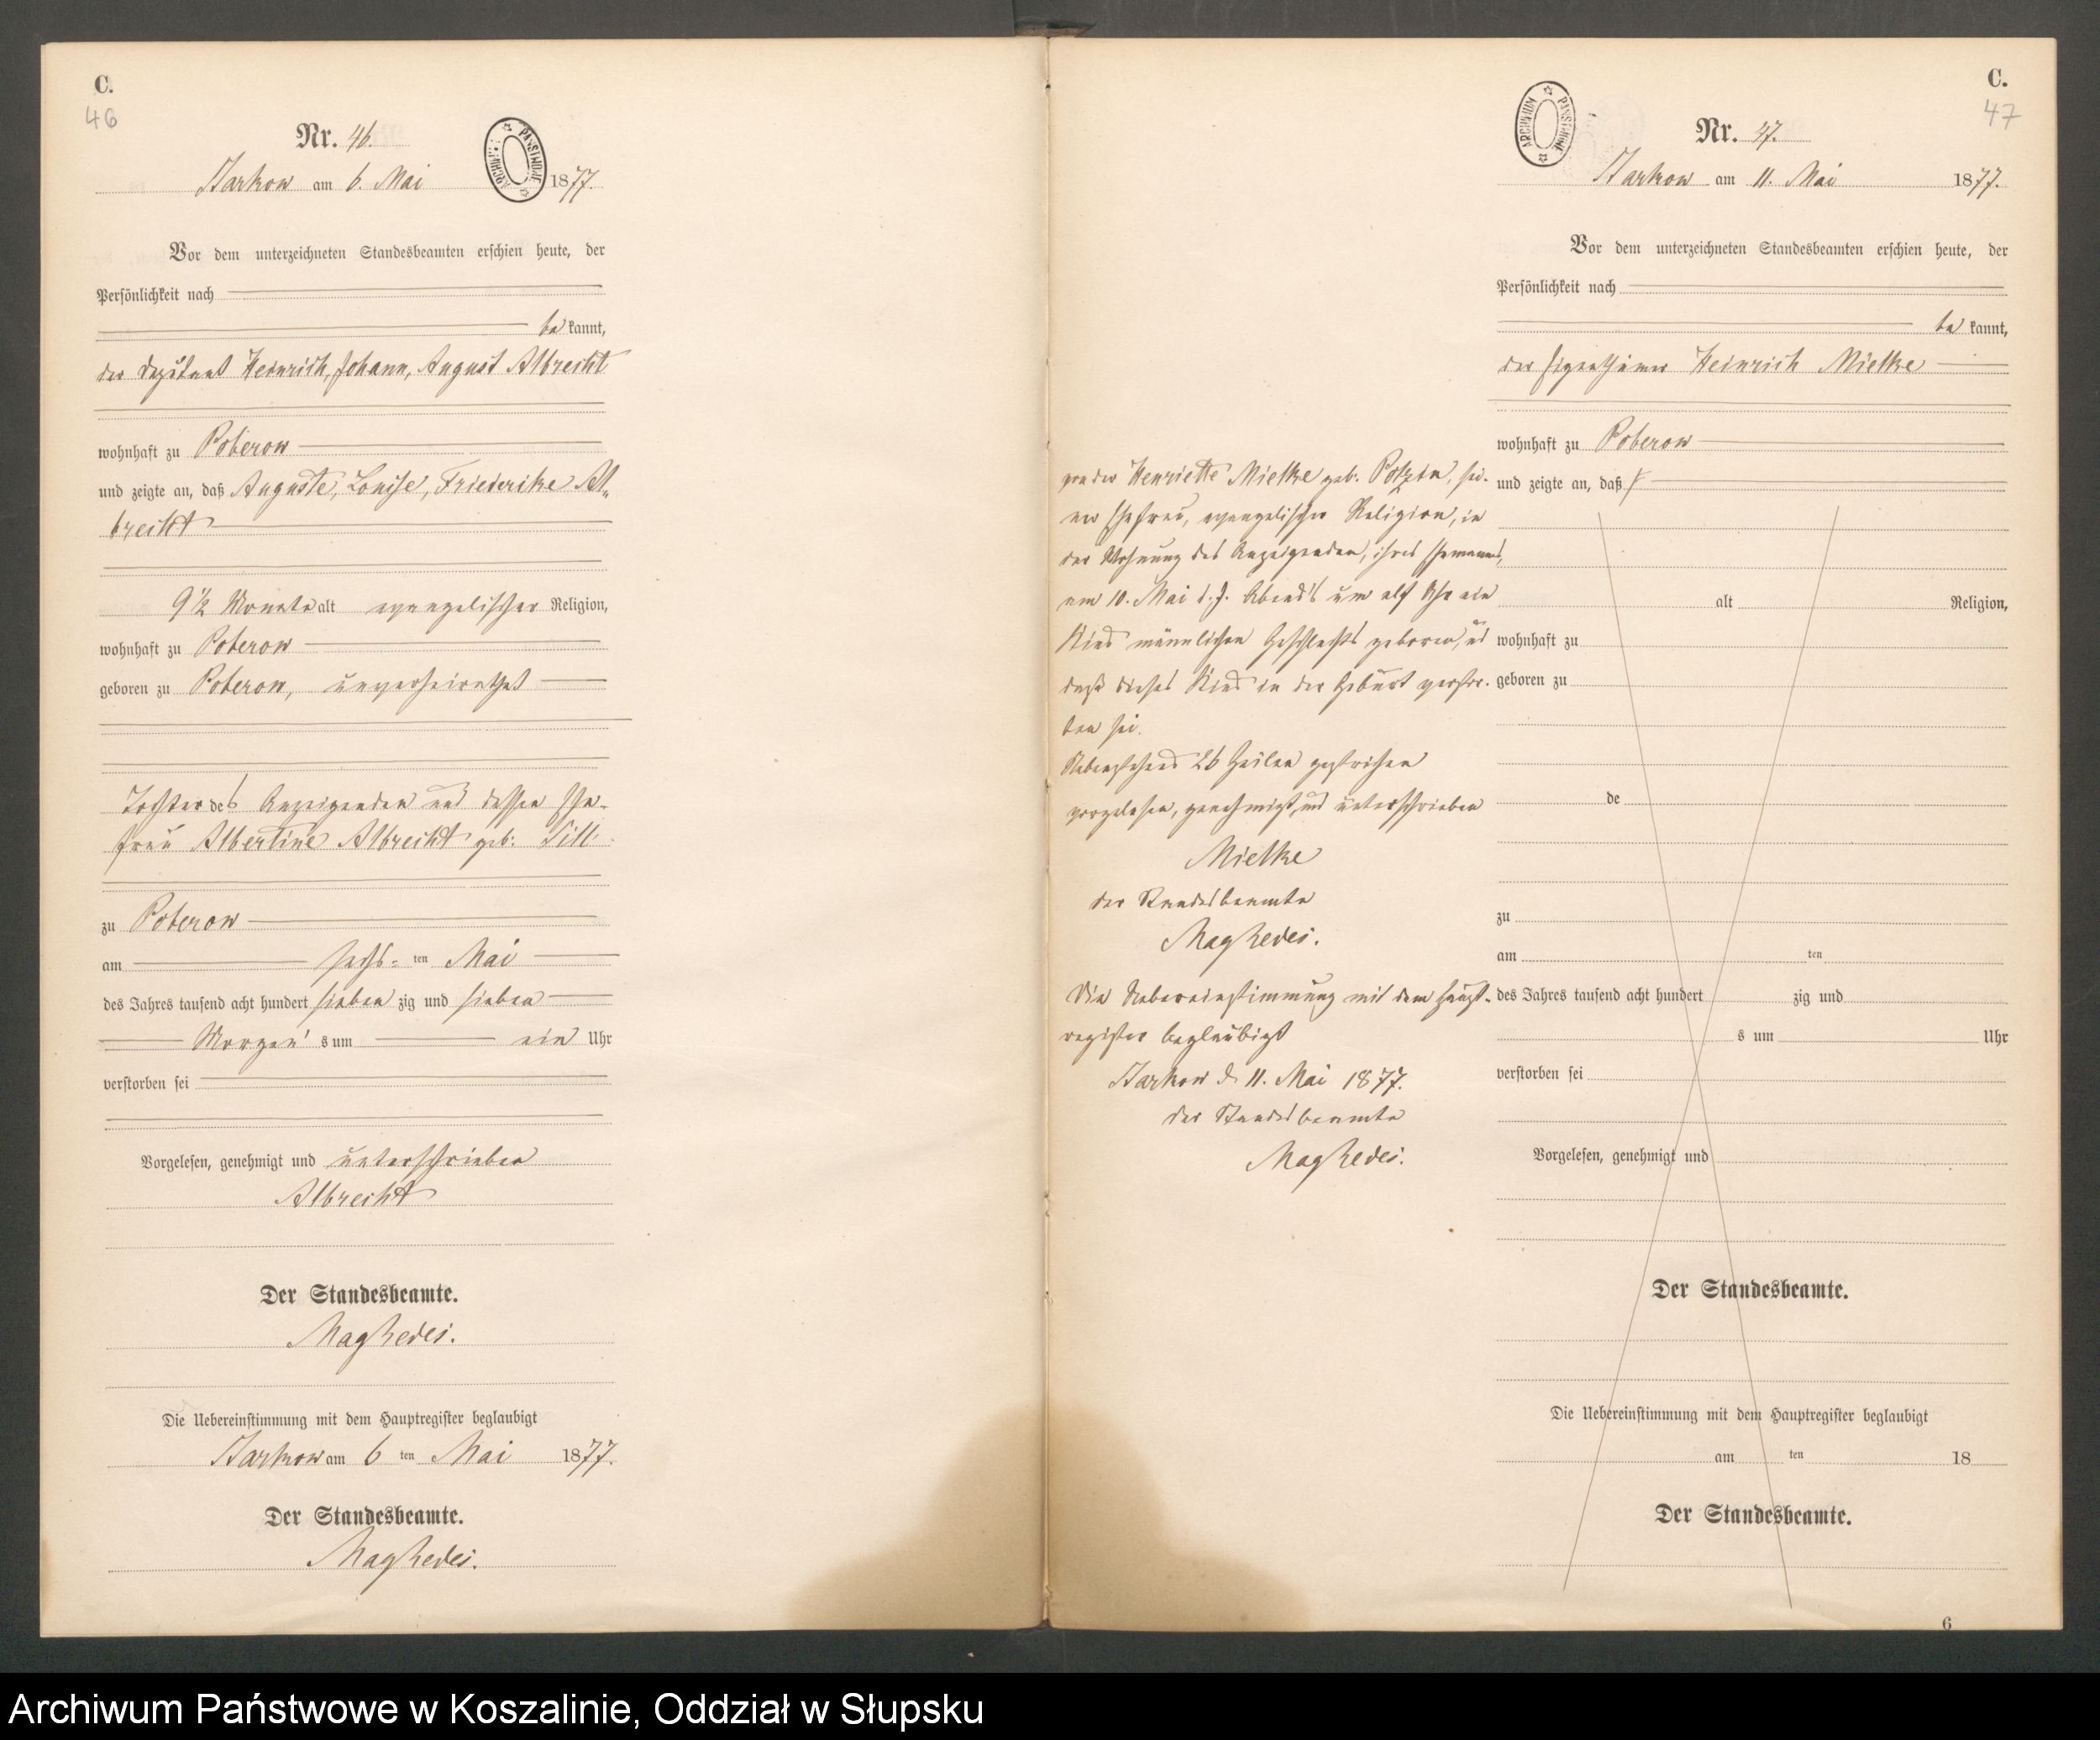 C.
46
Nr. 46.
ARCHIWUM PAŃSTWOWE
Starkow am 6. Mai 1877.
Vor dem unterzeichneten Standesbeamten erschien heute, der
Persönlichkeit nach
bekannt,
der Deputant Heinrich, Johann, August Albrecht
wohnhaft zu Poberow
und zeigte an, daß Auguste, Louise, Friederike Al-
brecht
9 1/2 Monate alt evangelischer Religion,
wohnhaft zu Poberow
geboren zu Poberow, unverheirathet
Tochter des Anzeigenden und dessen Ehe-
frau Albertine Albrecht geb:
zu Poberow
am sechs-ten Mai
des Jahres tausend acht hundert siebenzig und sieben
Morgens um ein Uhr
verstorben sei
Vorgelesen, genehmigt und unterschrieben
Albrecht
Der Standesbeamte.
Die Uebereinstimmung mit dem Hauptregister beglaubigt
Starkow am 6ten Mai 1877.
Der Standesbeamte.
C.
47
Nr. 47.
ARCHIWUM PAŃSTWOWE
Starkow am 11. Mai 1877.
Vor dem unterzeichneten Standesbeamten erschien heute, der
Persönlichkeit nach
bekannt,
der Eigenthümer Heinrich Mielke
wohnhaft zu Poberow
und zeigte an, daß
von der Henriette Mielke geb. Polzin, sei-
ner Ehefrau, evangelischer Religion, in
der Wohnung des Anzeigenden, ihres Ehemannes,
am 10. Mai d. J. Abends um elf Uhr ein
Kind männlichen Geschlechts geboren, u
daß dieses Kind in der Geburt verstor-
ben sei.
Nebenstehend 26 Zeilen gestrichen
vorgelesen, genehmigt und unterschrieben
Mielke
der Standesbeamte
Die Uebereinstimmung mit dem Haupt-
register beglaubigt
Starkow d. 11. Mai 1877.
der Standesbeamte
alt Religion,
wohnhaft zu
geboren zu
de
zu
am ten
des Jahres tausend acht hundert zig und
s um Uhr
verstorben sei
Vorgelesen, genehmigt und
Der Standesbeamte.
Die Uebereinstimmung mit dem Hauptregister beglaubigt
am ten 18
Der Standesbeamte.
6
Archiwum Państwowe w Koszalinie, Oddział w Słupsku